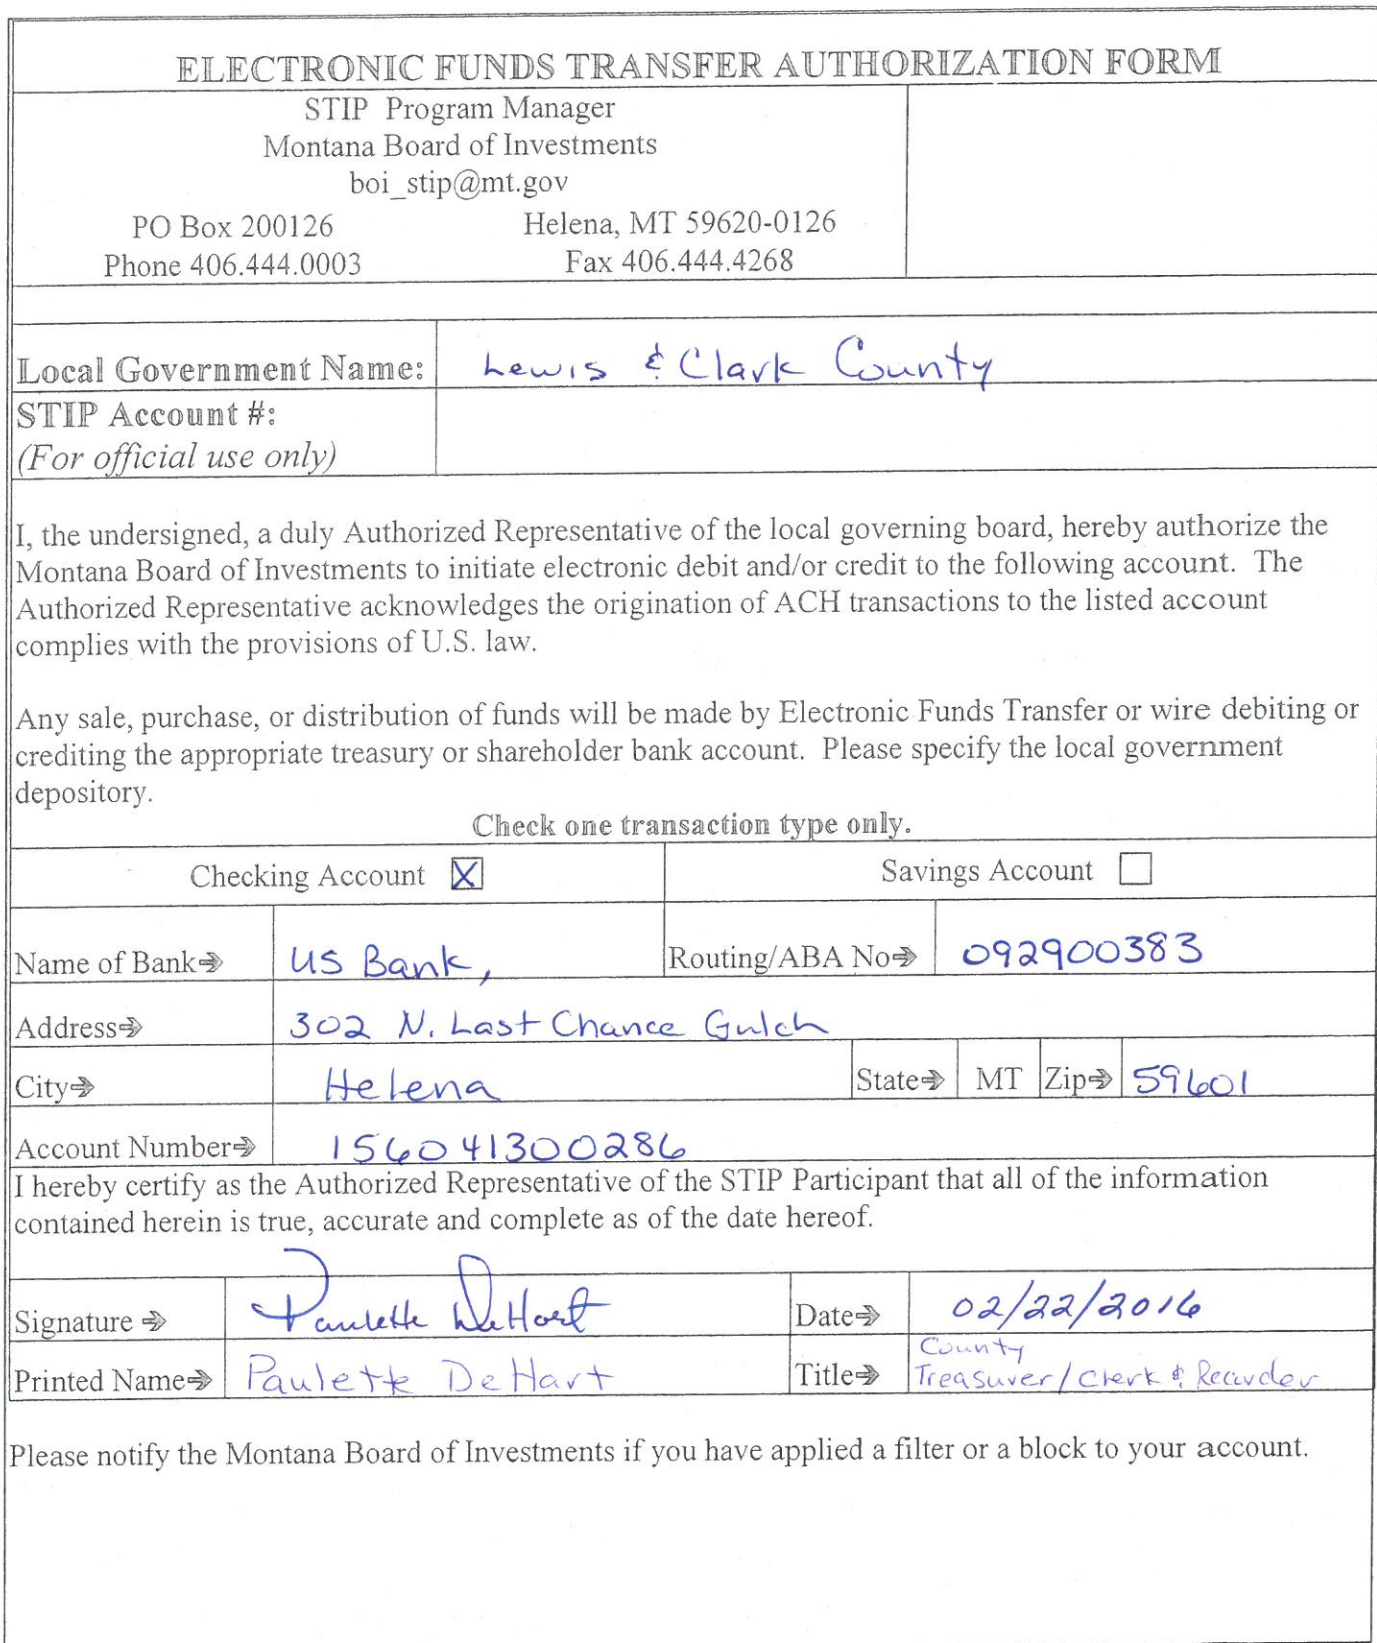 ELECTRONIC FUNDS TRANSFER AUTHORIZATION FORM
STIP Program Manager
Montana Board of Investments
boi_stip@mt.gov
PO Box 200126 Helena, MT 59620-0126
Phone 406.444.0003 Fax 406.444.4268
Local Government Name: Lewis & Clark County
STIP Account #:
(For official use only)
I, the undersigned, a duly Authorized Representative of the local governing board, hereby authorize the
Montana Board of Investments to initiate electronic debit and/or credit to the following account. The
Authorized Representative acknowledges the origination of ACH transactions to the listed account
complies with the provisions of U.S. law.
Any sale, purchase, or distribution of funds will be made by Electronic Funds Transfer or wire debiting or
crediting the appropriate treasury or shareholder bank account. Please specify the local government
depository.
Check one transaction type only.
Checking Account X Savings Account
Name of Bank US Bank, Routing/ABA No 092900383
Address 302 N. Last Chance Gulch
City Helena State MT Zip 59601
Account Number 156041300286
I hereby certify as the Authorized Representative of the STIP Participant that all of the information
contained herein is true, accurate and complete as of the date hereof.
Signature Paulette DeHart Date 02/22/2016
Printed Name Paulette DeHart Title County
Treasurer/Clerk & Recorder
Please notify the Montana Board of Investments if you have applied a filter or a block to your account.